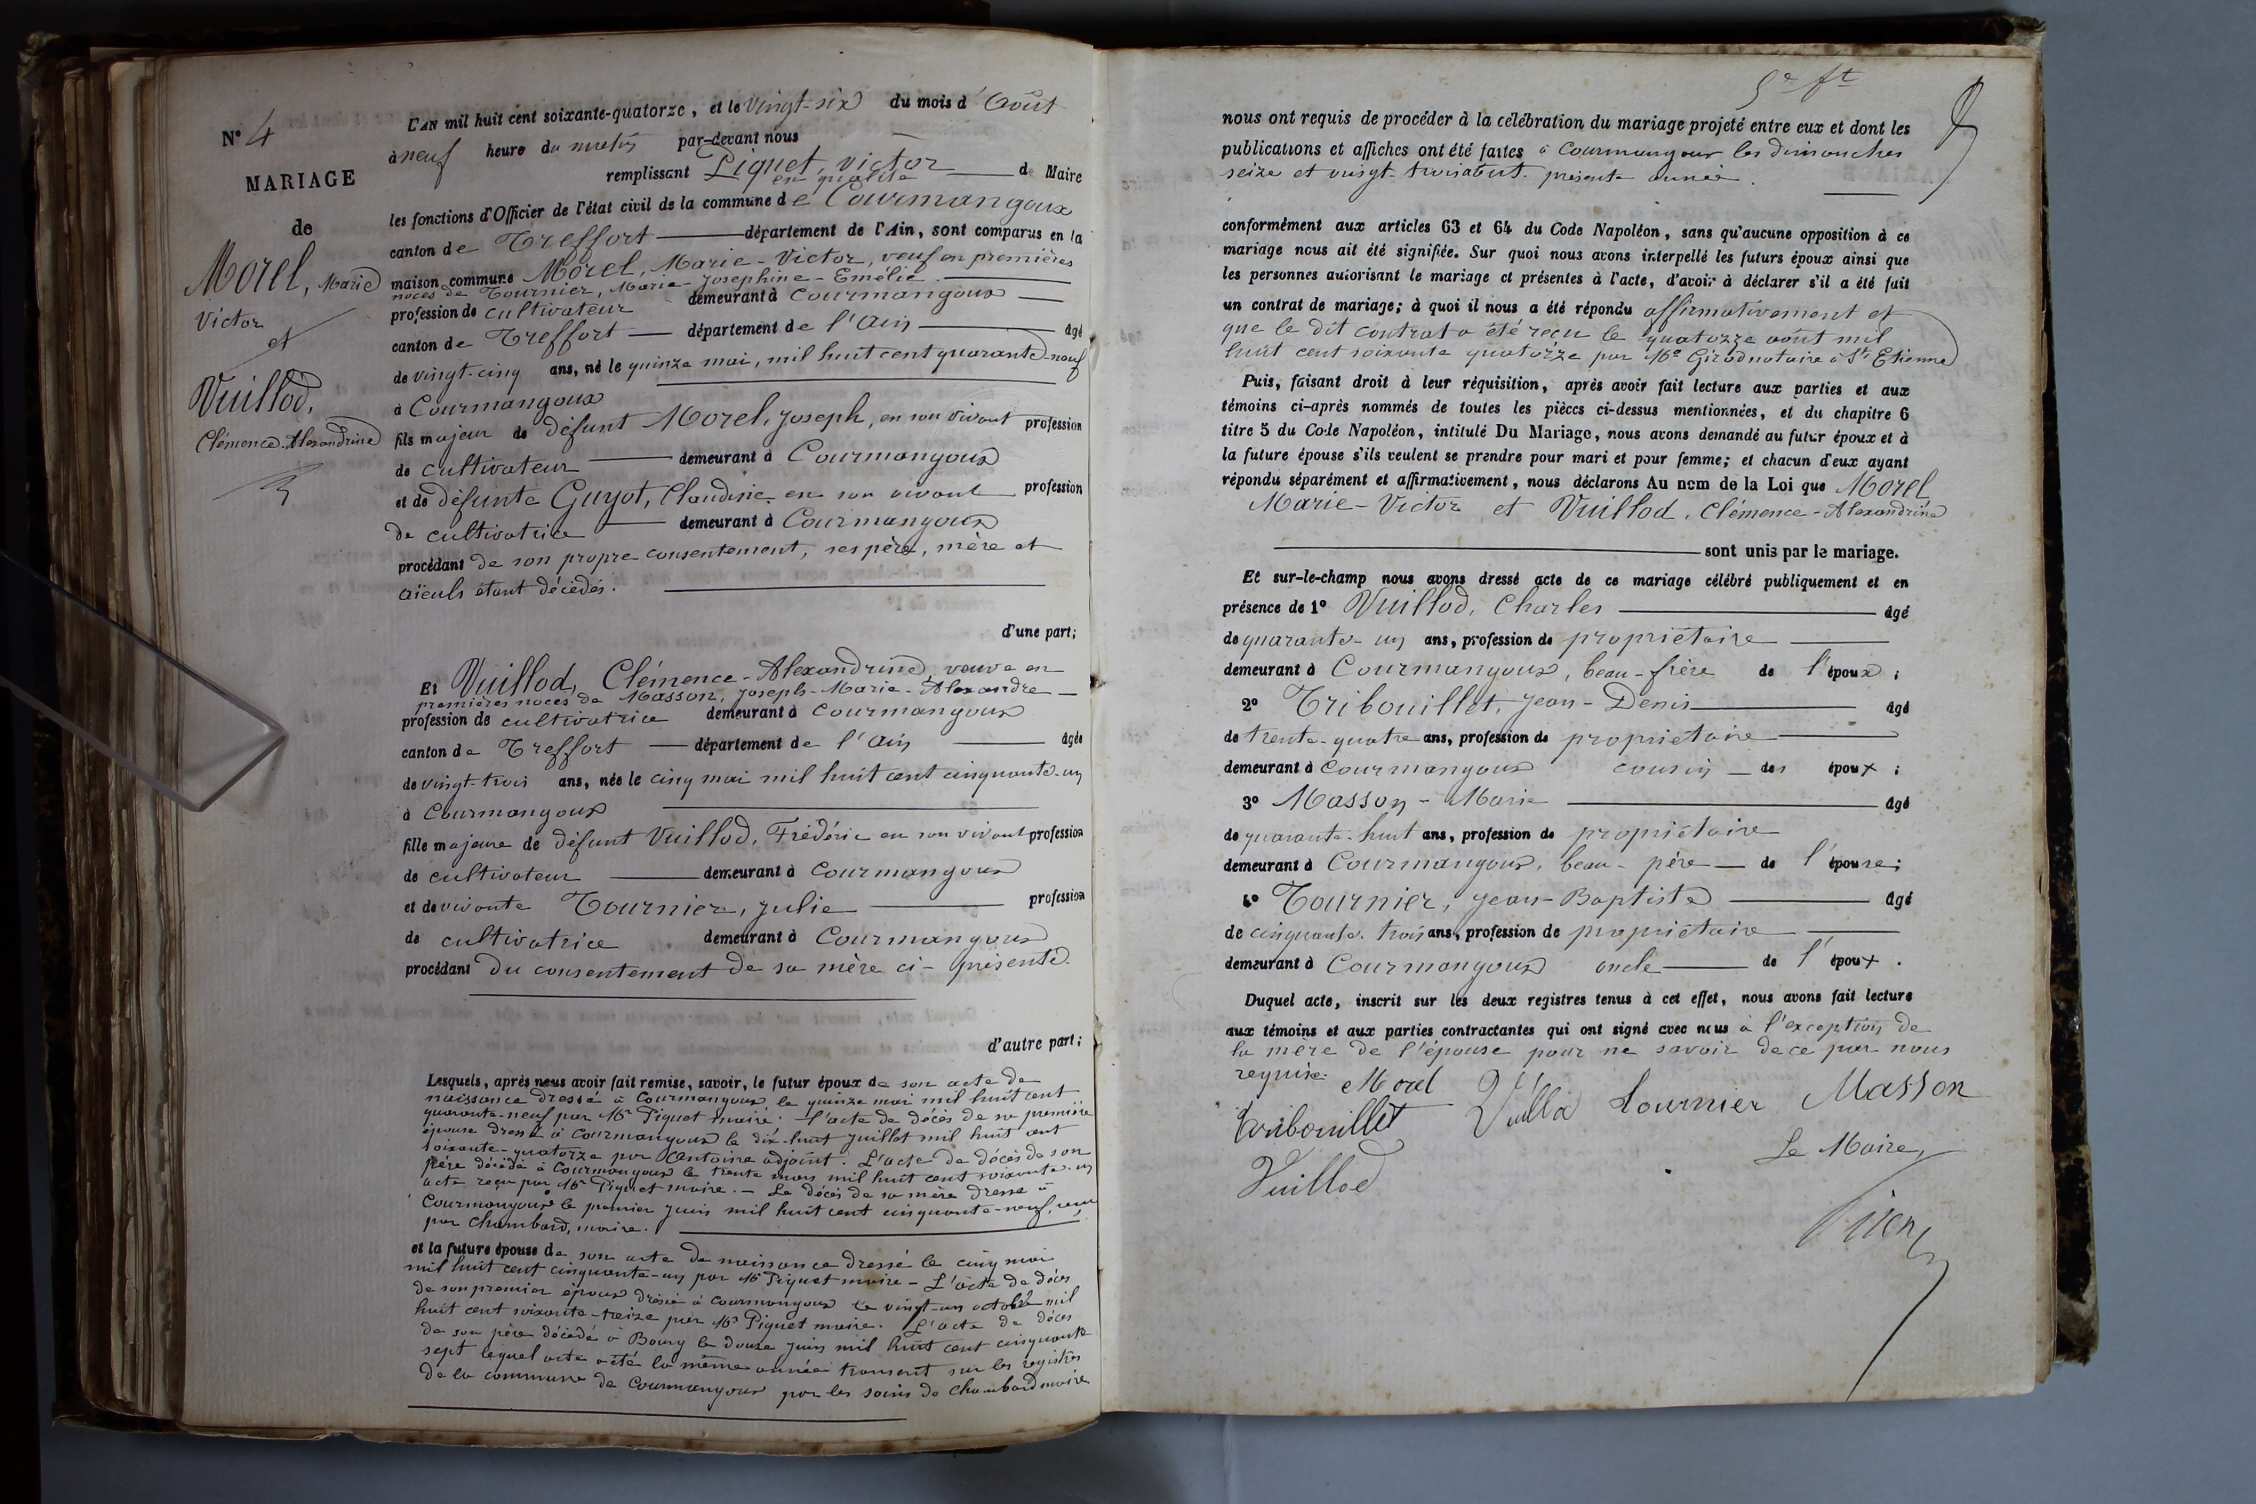 N° 4
MARIAGE
de
Morel, Marie
Victor
et
Vuillod,
Clémence-Alexandrine
L'AN mil huit cent soixante-quatorze, et le vingt-six du mois d'Août
à neuf heure du matin par-devant nous
Piquet, Victor en qualité de Maire
remplissant
les fonctions d'Officier de l'état civil de la commune de Courmangoux
canton de Treffort département de l'Ain, sont comparus en la
maison commune Morel, Marie-Victor, veuf en premières
noces de Tournier, Marie-Josephine-Emélie.
profession de cultivateur demeurant à Courmangoux
canton de Treffort département de l'Ain âgé
de vingt-cinq ans, né le quinze mai, mil huit cent quarante-neuf
à Courmangoux
fils majeur de défunt Morel, Joseph, en son vivant profession
de cultivateur demeurant à Courmangoux
et de défunte Guyot, Claudine, en son vivant profession
de cultivatrice demeurant à Courmangoux
procédant de son propre consentement, ses père, mère et
aïeuls étant décédés.
d'une part;
Et Vuillod, Clémence-Alexandrine, veuve en
premières noces de Masson, Joseph-Marie-Alexandre
profession de cultivatrice demeurant à Courmangoux
canton de Treffort département de l'Ain âgée
de vingt-trois ans, née le cinq mai mil huit cent cinquante-un
à Courmangoux
fille majeure de défunt Vuillod, Frédéric en son vivant profession
de cultivateur demeurant à Courmangoux
et de vivante Tournier, Julie profession
de cultivatrice demeurant à Courmangoux
procédant du consentement de sa mère ci-présente
d'autre part;
Lesquels, après nous avoir fait remise, savoir, le futur époux de son acte de
naissance dressé à Courmangoux le quinze mai mil huit cent
quarante-neuf par Mr Piquet maire. l'acte de décès de sa première
épouse dressé à Courmangoux le dix-huit juillet mil huit cent
soixante-quatorze par adjoint. L'acte de décès de son
père décédé à Courmangoux le trente mars mil huit cent soixante-un
acte reçu par Mr Piquet maire. - Le décès de sa mère dressé à
Courmangoux le premier juin mil huit cent cinquante-neuf, reçu
par Chambard, maire.
et la future épouse de son acte de naissance dressé le cinq mai
mil huit cent cinquante-un par Mr Piquet maire - L'acte de décès
de son premier époux dressé à Courmangoux le vingt-un octobre mil
huit cent soixante-treize par Mr Piquet maire. L'acte de décès
de son père décédé à Bourg le douze juin mil huit cent cinquante
sept lequel acte a été la même année transcrit sur les registres
de la commune de Courmangoux par les soins de Chambard maire
nous ont requis de procéder à la célébration du mariage projeté entre eux et dont les
publications et affiches ont été faites à Courmangoux les dimanches
seize et vingt-trois août présente année.
conformément aux articles 63 et 64 du Code Napoléon, sans qu'aucune opposition à ce
mariage nous ait été signifiée. Sur quoi nous avons interpellé les futurs époux ainsi que
les personnes autorisant le mariage et présentes à l'acte, d'avoir à déclarer s'il a été fait
un contrat de mariage; à quoi il nous a été répondu affirmativement et
que le dit contrat a été reçu le quatorze août mil
huit cent soixante quatorze par Me Girod notaire à St Etienne
Puis, faisant droit à leur réquisition, après avoir fait lecture aux parties et aux
témoins ci-après nommés de toutes les pièces ci-dessus mentionnées, et du chapitre 6
titre 5 du Code Napoléon, intitulé Du Mariage, nous avons demandé au futur époux et à
la future épouse s'ils veulent se prendre pour mari et pour femme; et chacun d'eux ayant
répondu séparément et affirmativement, nous déclarons Au nom de la Loi que Morel
Marie-Victor et Vuillod, Clémence-Alexandrine
sont unis par le mariage.
Et sur-le-champ nous avons dressé acte de ce mariage célébré publiquement et en
présence de 1° Vuillod, Charles âgé
de quarante-un ans, profession de propriétaire
demeurant à Courmangoux, beau-frère de l'époux;
2° Tribouillet, Jean-Denis âgé
de trente-quatre ans, profession de propriétaire
demeurant à Courmangoux cousin des époux;
3° Masson-Marie âgé
de quarante-huit ans, profession de propriétaire
demeurant à Courmangoux, beau-père de l'épouse;
4° Tournier, Jean-Baptiste âgé
de cinquante-trois ans, profession de propriétaire
demeurant à Courmangoux oncle de l'époux.
Duquel acte, inscrit sur les deux registres tenus à cet effet, nous avons fait lecture
aux témoins et aux parties contractantes qui ont signé avec nous à l'exception de
la mère de l'épouse pour ne savoir de ce par nous
requise.
Morel Vuillod Tournier Masson
Tribouillet
Le Maire,
Vuillod